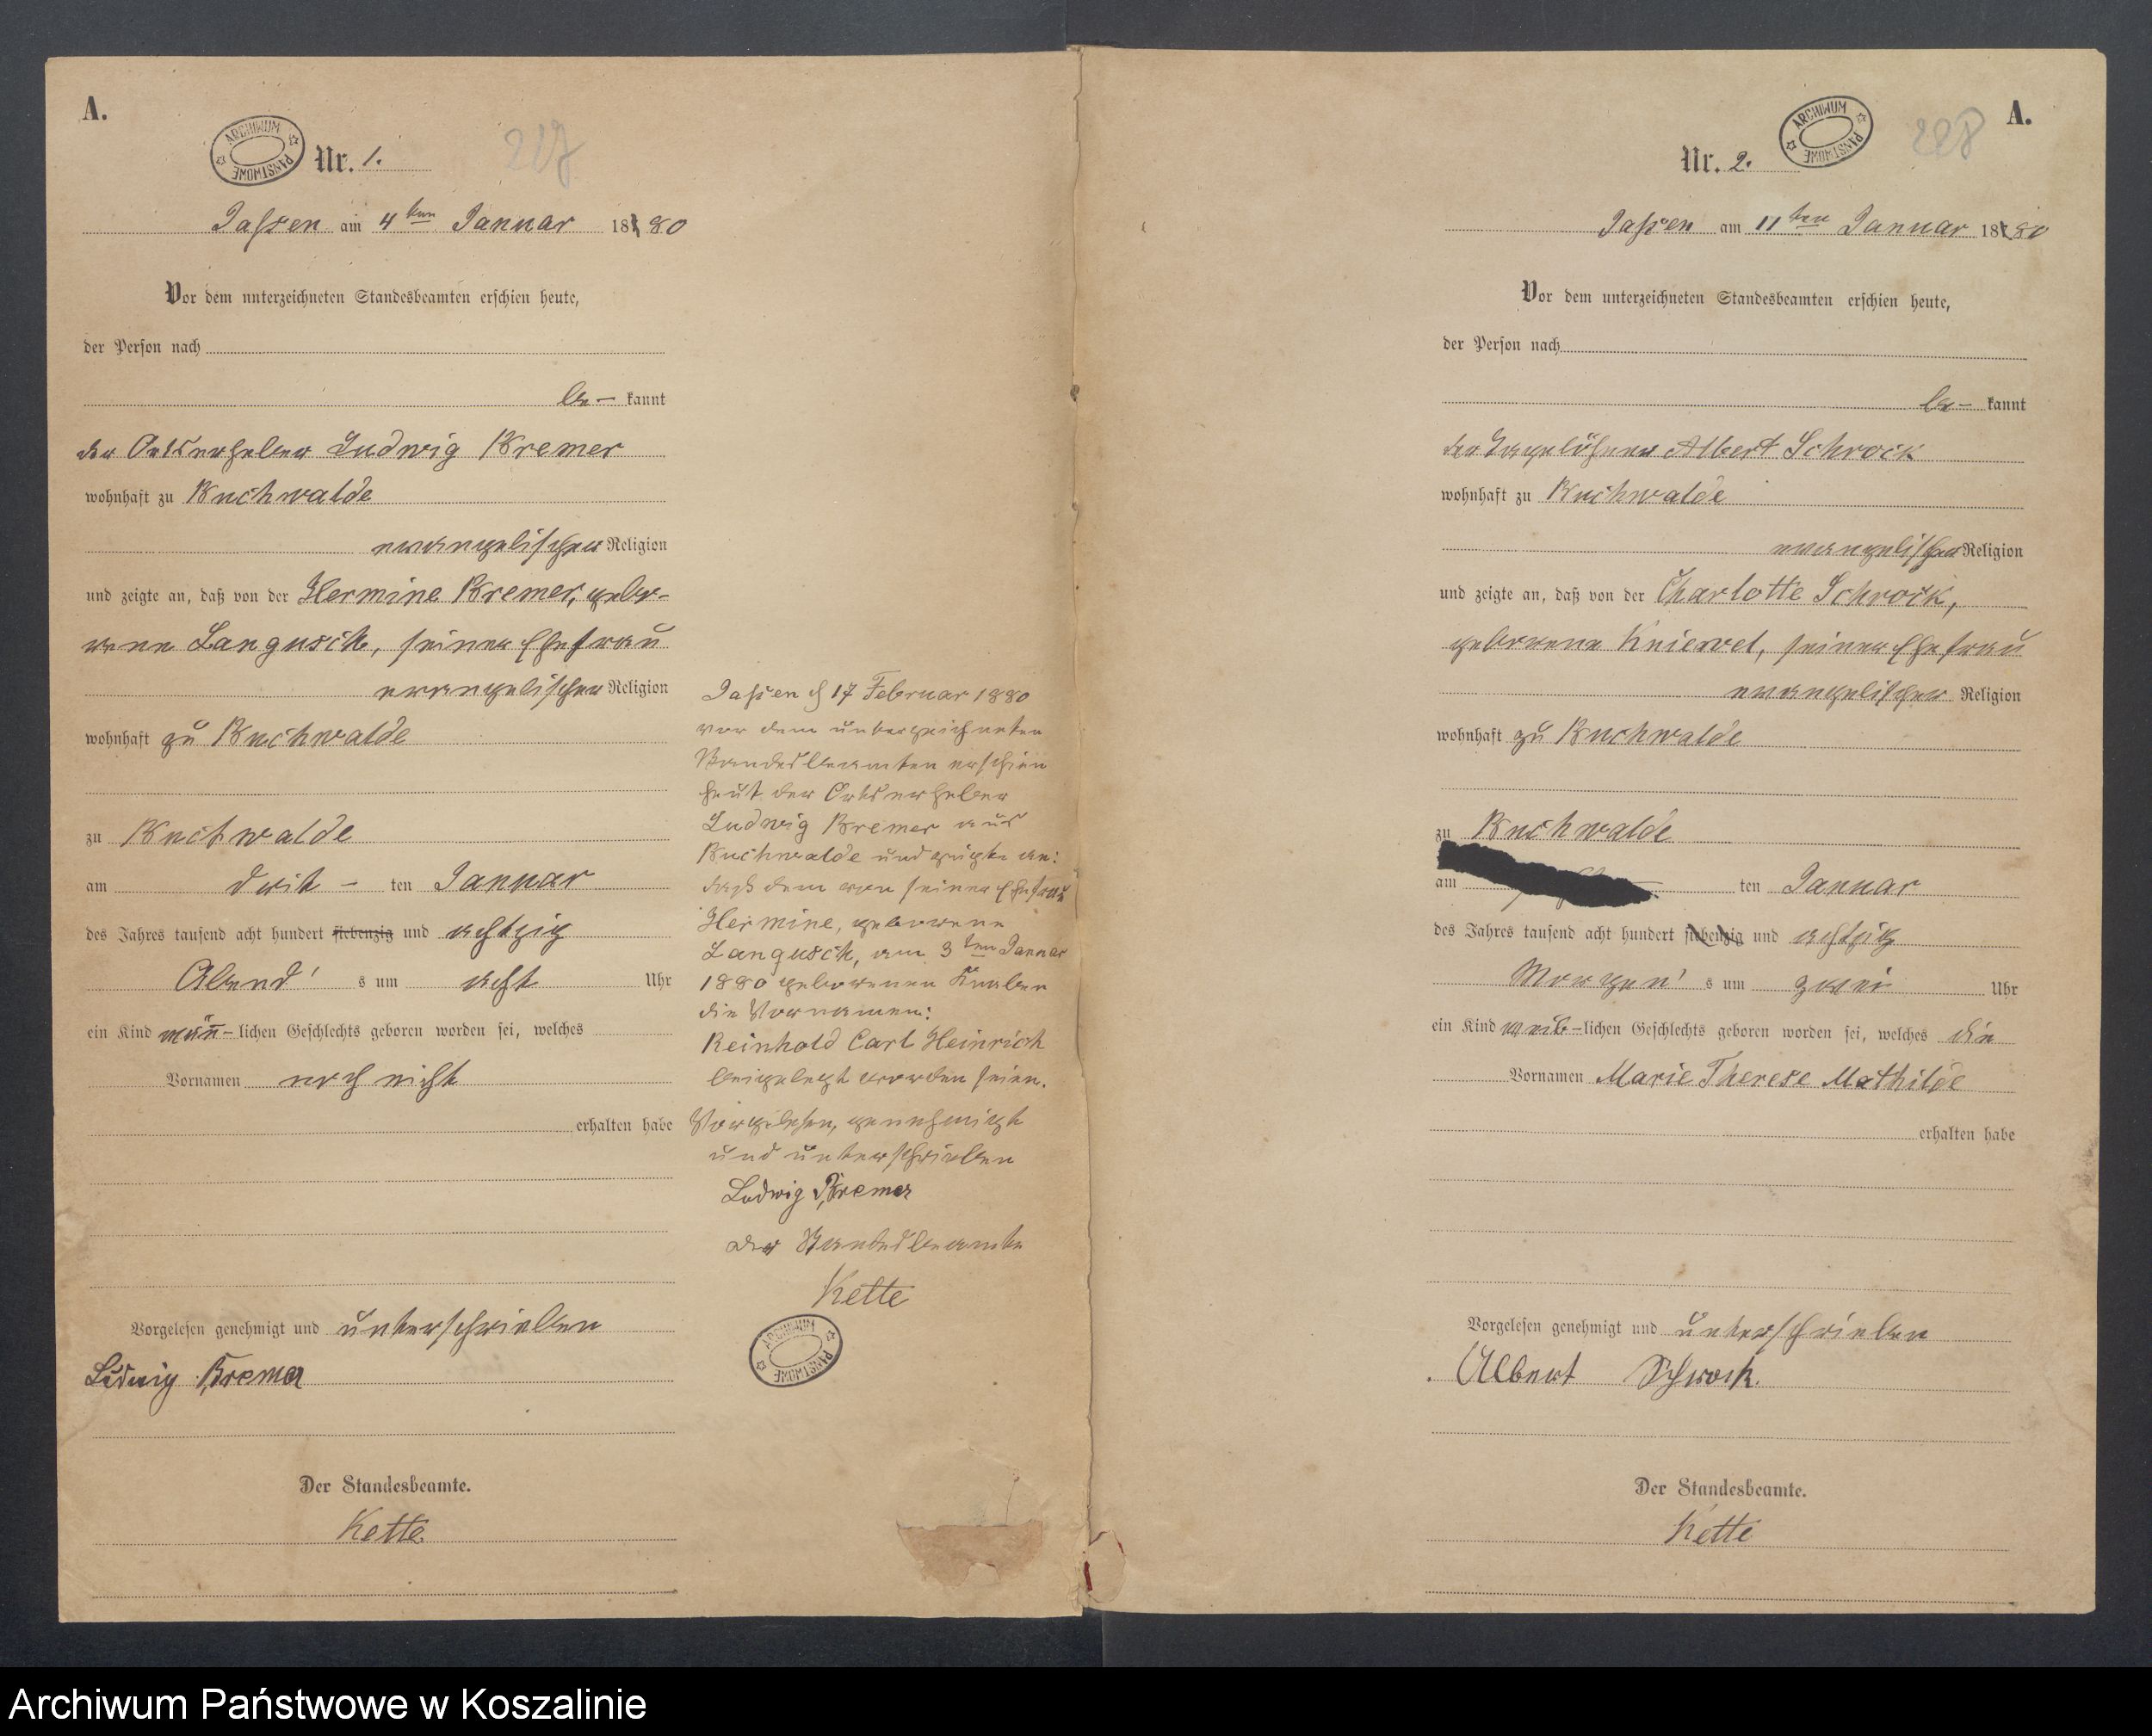 A.
ARCHIWUM PAŃSTWOWE
Nr. 1.
Jassen am 4ten Januar 1880
Vor dem unterzeichneten Standesbeamten erschien heute,
der Person nach
be- kannt
der Ortserheber Ludwig Kremer
wohnhaft zu Buchwalde
evangelischer Religion
und zeigte an, daß von der Hermine Kremer, gebo-
rene Langusch, seiner Ehefrau
evangelischer Religion
wohnhaft zu Buchwalde
zu Buchwalde
am drit - ten Januar
des Jahres tausend acht hundert siebenzig und achtzig
Abend' s um acht Uhr
ein Kind männ-lichen Geschlechts geboren worden sei, welches
Vornamen noch nicht
erhalten habe
Vorgelesen genehmigt und unterschrieben
Ludwig Kremer
Der Standesbeamte.
Kette
Jassen d 17 Februar 1880
vor dem unterzeichneten
Standesbeamten erschien
heut der Ortserheber
Ludwig Kremer aus
Buchwalde und zeigte an:
daß dem von seiner Ehefrau
Hermine, geborene
Langusch, am 3ten Januar
1880 geborenen Knaben
die Vornamen:
Reinhold Carl Heinrich
beigelegt worden seien.
Vorgelesen, genehmigt
und unterschrieben
Ludwig Kremer
Der Standesbeamte
Kette
ARCHIWUM PAŃSTWOWE
A.
228
ARCHIWUM PAŃSTWOWE
Nr. 2.
Jassen am 11ten Januar 1880
Vor dem unterzeichneten Standesbeamten erschien heute,
der Person nach
be- kannt
der Tagelöhner Albert Schrock
wohnhaft zu Buchwalde
evangelischer Religion
und zeigte an, daß von der Charlotte Schrock,
geborene Kniervel, seiner Ehefrau
evangelischer Religion
wohnhaft zu Buchwalde
zu Buchwalde
am ten Januar
des Jahres tausend acht hundert siebenzig und achtzig
Morgen' s um zwei Uhr
ein Kind weib-lichen Geschlechts geboren worden sei, welches die
Vornamen Marie Therese Mathilde
erhalten habe
Vorgelesen genehmigt und unterschrieben
Albert Schrock.
Der Standesbeamte.
Kette
Archiwum Państwowe w Koszalinie